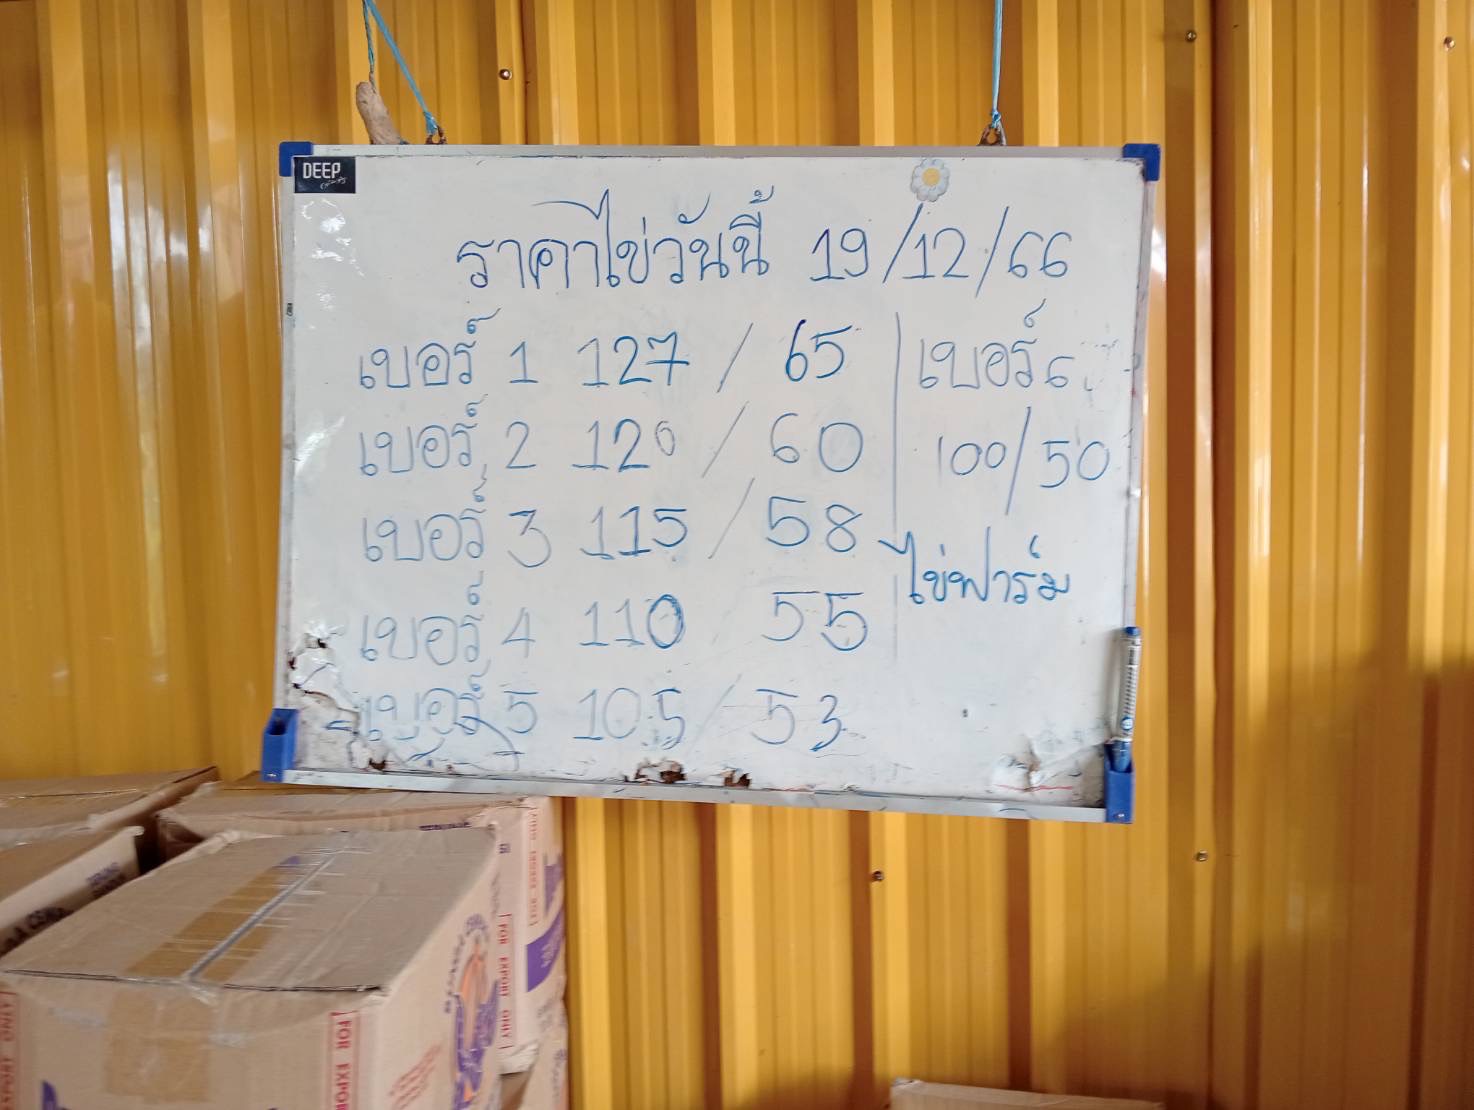 DEEP
ราคาไข่วันนี้ 19/12/66
เบอร์ 1 127 / 65
เบอร์ 2 120 / 60
เบอร์ 3 115 / 58
เบอร์ 4 110 55
เบอร์ 5 105 / 53
เบอร์ 6
100/50
ไข่ฟาร์ม
FOR EXPORT ONLY
FOR EXPOR